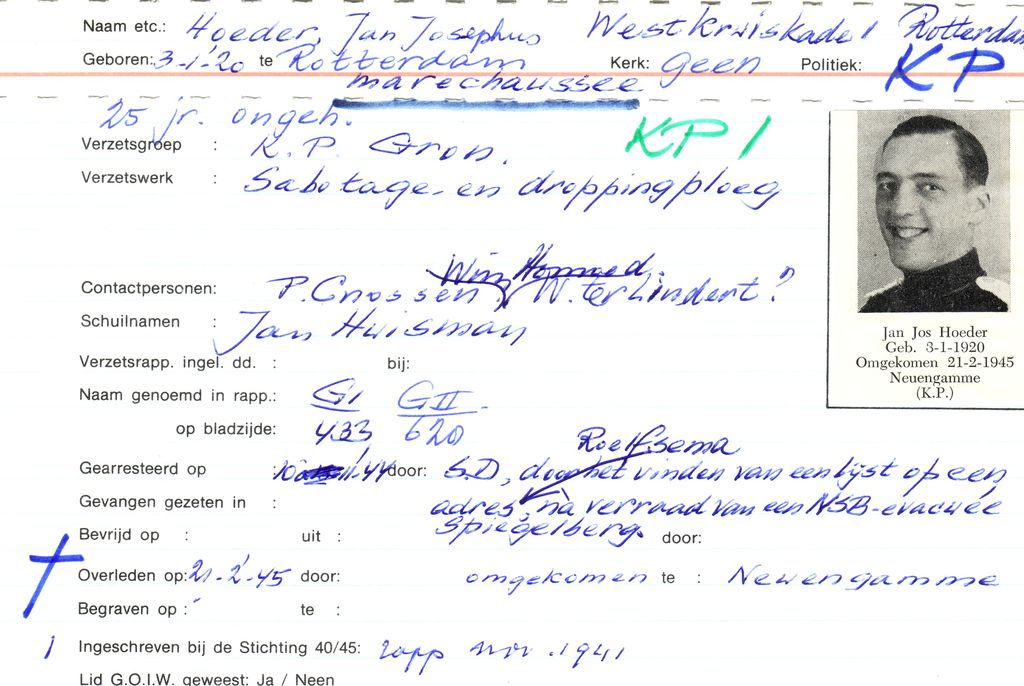 Naam etc.: Hoeder, Jan Josephus West Kruiskade 1 Rotterdam
Geboren: 3-1-20 te Rotterdam Kerk: geen Politiek: KP
marechaussee
25 jr. ongeh.
KP 1
Verzetsgroep : K.P. Gron.
Verzetswerk : Sabotage- en droppingploeg
Wim
Contactpersonen: P. Cnossen, W. ter Lindert?
Schuilnamen : Jan Huisman
Verzetsrapp. ingel. dd. : bij:
Naam genoemd in rapp.: G1 GII
op bladzijde: 433 620
Roelfsema
Gearresteerd op : 10 11-44 door: S.D, door het vinden van een lijst op een
Gevangen gezeten in : adres, na verraad van een NSB-evacuée
Spiegelberg.
Bevrijd op : uit : door:
Overleden op: 21-2-45 door: omgekomen te : Neuengamme
Begraven op : te :
1 Ingeschreven bij de Stichting 40/45: rapp nr. 1941
Lid G.O.I.W. geweest: Ja / Neen
Jan Jos Hoeder
Geb. 3-1-1920
Omgekomen 21-2-1945
Neuengamme
(K.P.)